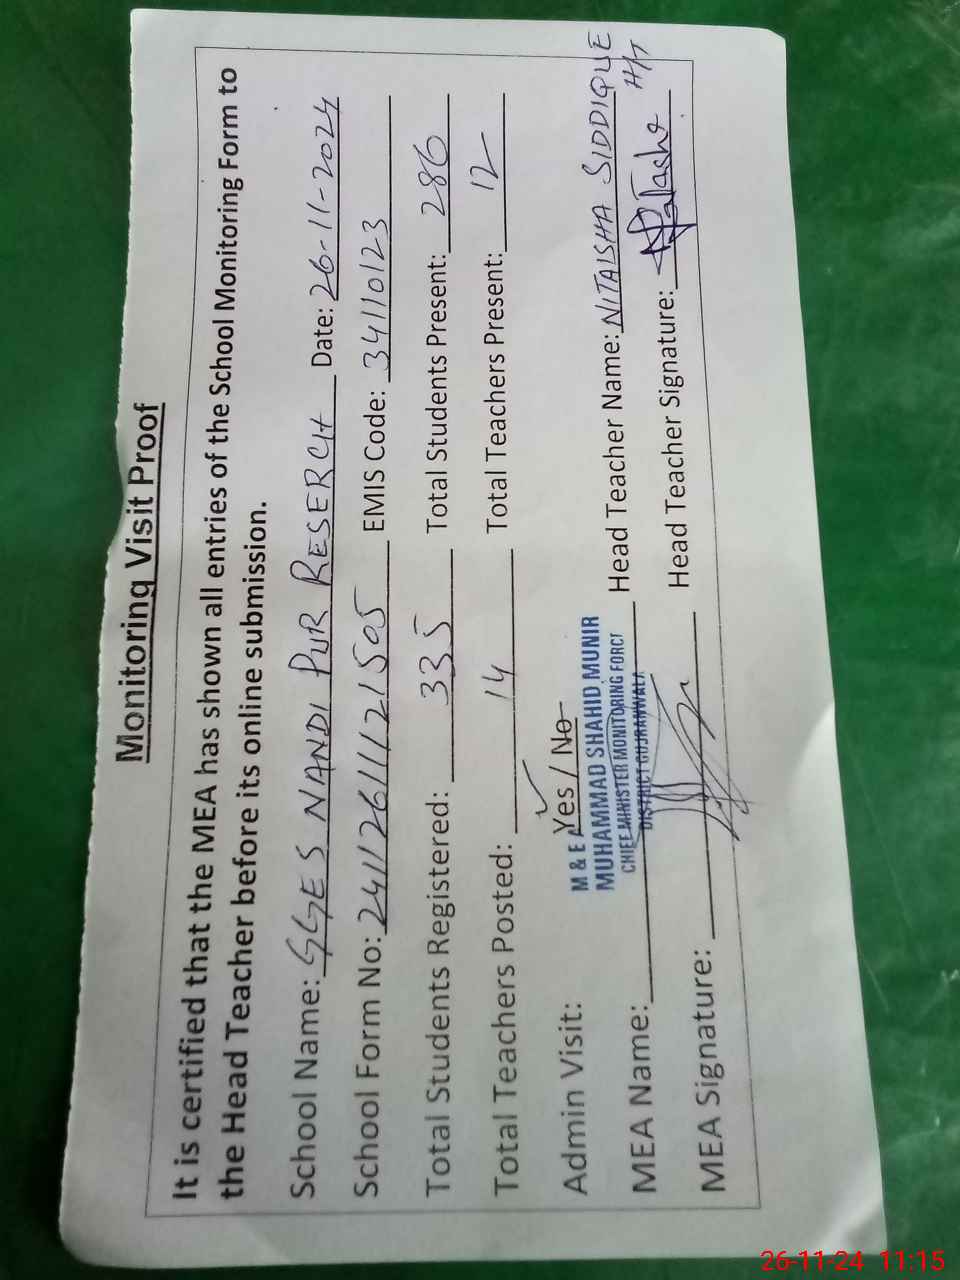 Monitoring Visit Proof
It is certified that the MEA has shown all entries of the School Monitoring Form to
the Head Teacher before its online submission.
School Name: GGES NANDI PUR RESERCH Date: 26-11-2024
School Form No: 241126111121505 EMIS Code: 34110123
Total Students Registered: 335 Total Students Present: 286
Total Teachers Posted: 14 Total Teachers Present: 12
Admin Visit: Yes / No
M & E A
MUHAMMAD SHAHID MUNIR
CHIEF MINISTER MONITORING FORCE
DISTRICT GUJRANWALA
MEA Name: Head Teacher Name: NITAISHA SIDDIQUE
H/T
MEA Signature: Head Teacher Signature:
26-11-24 11:15